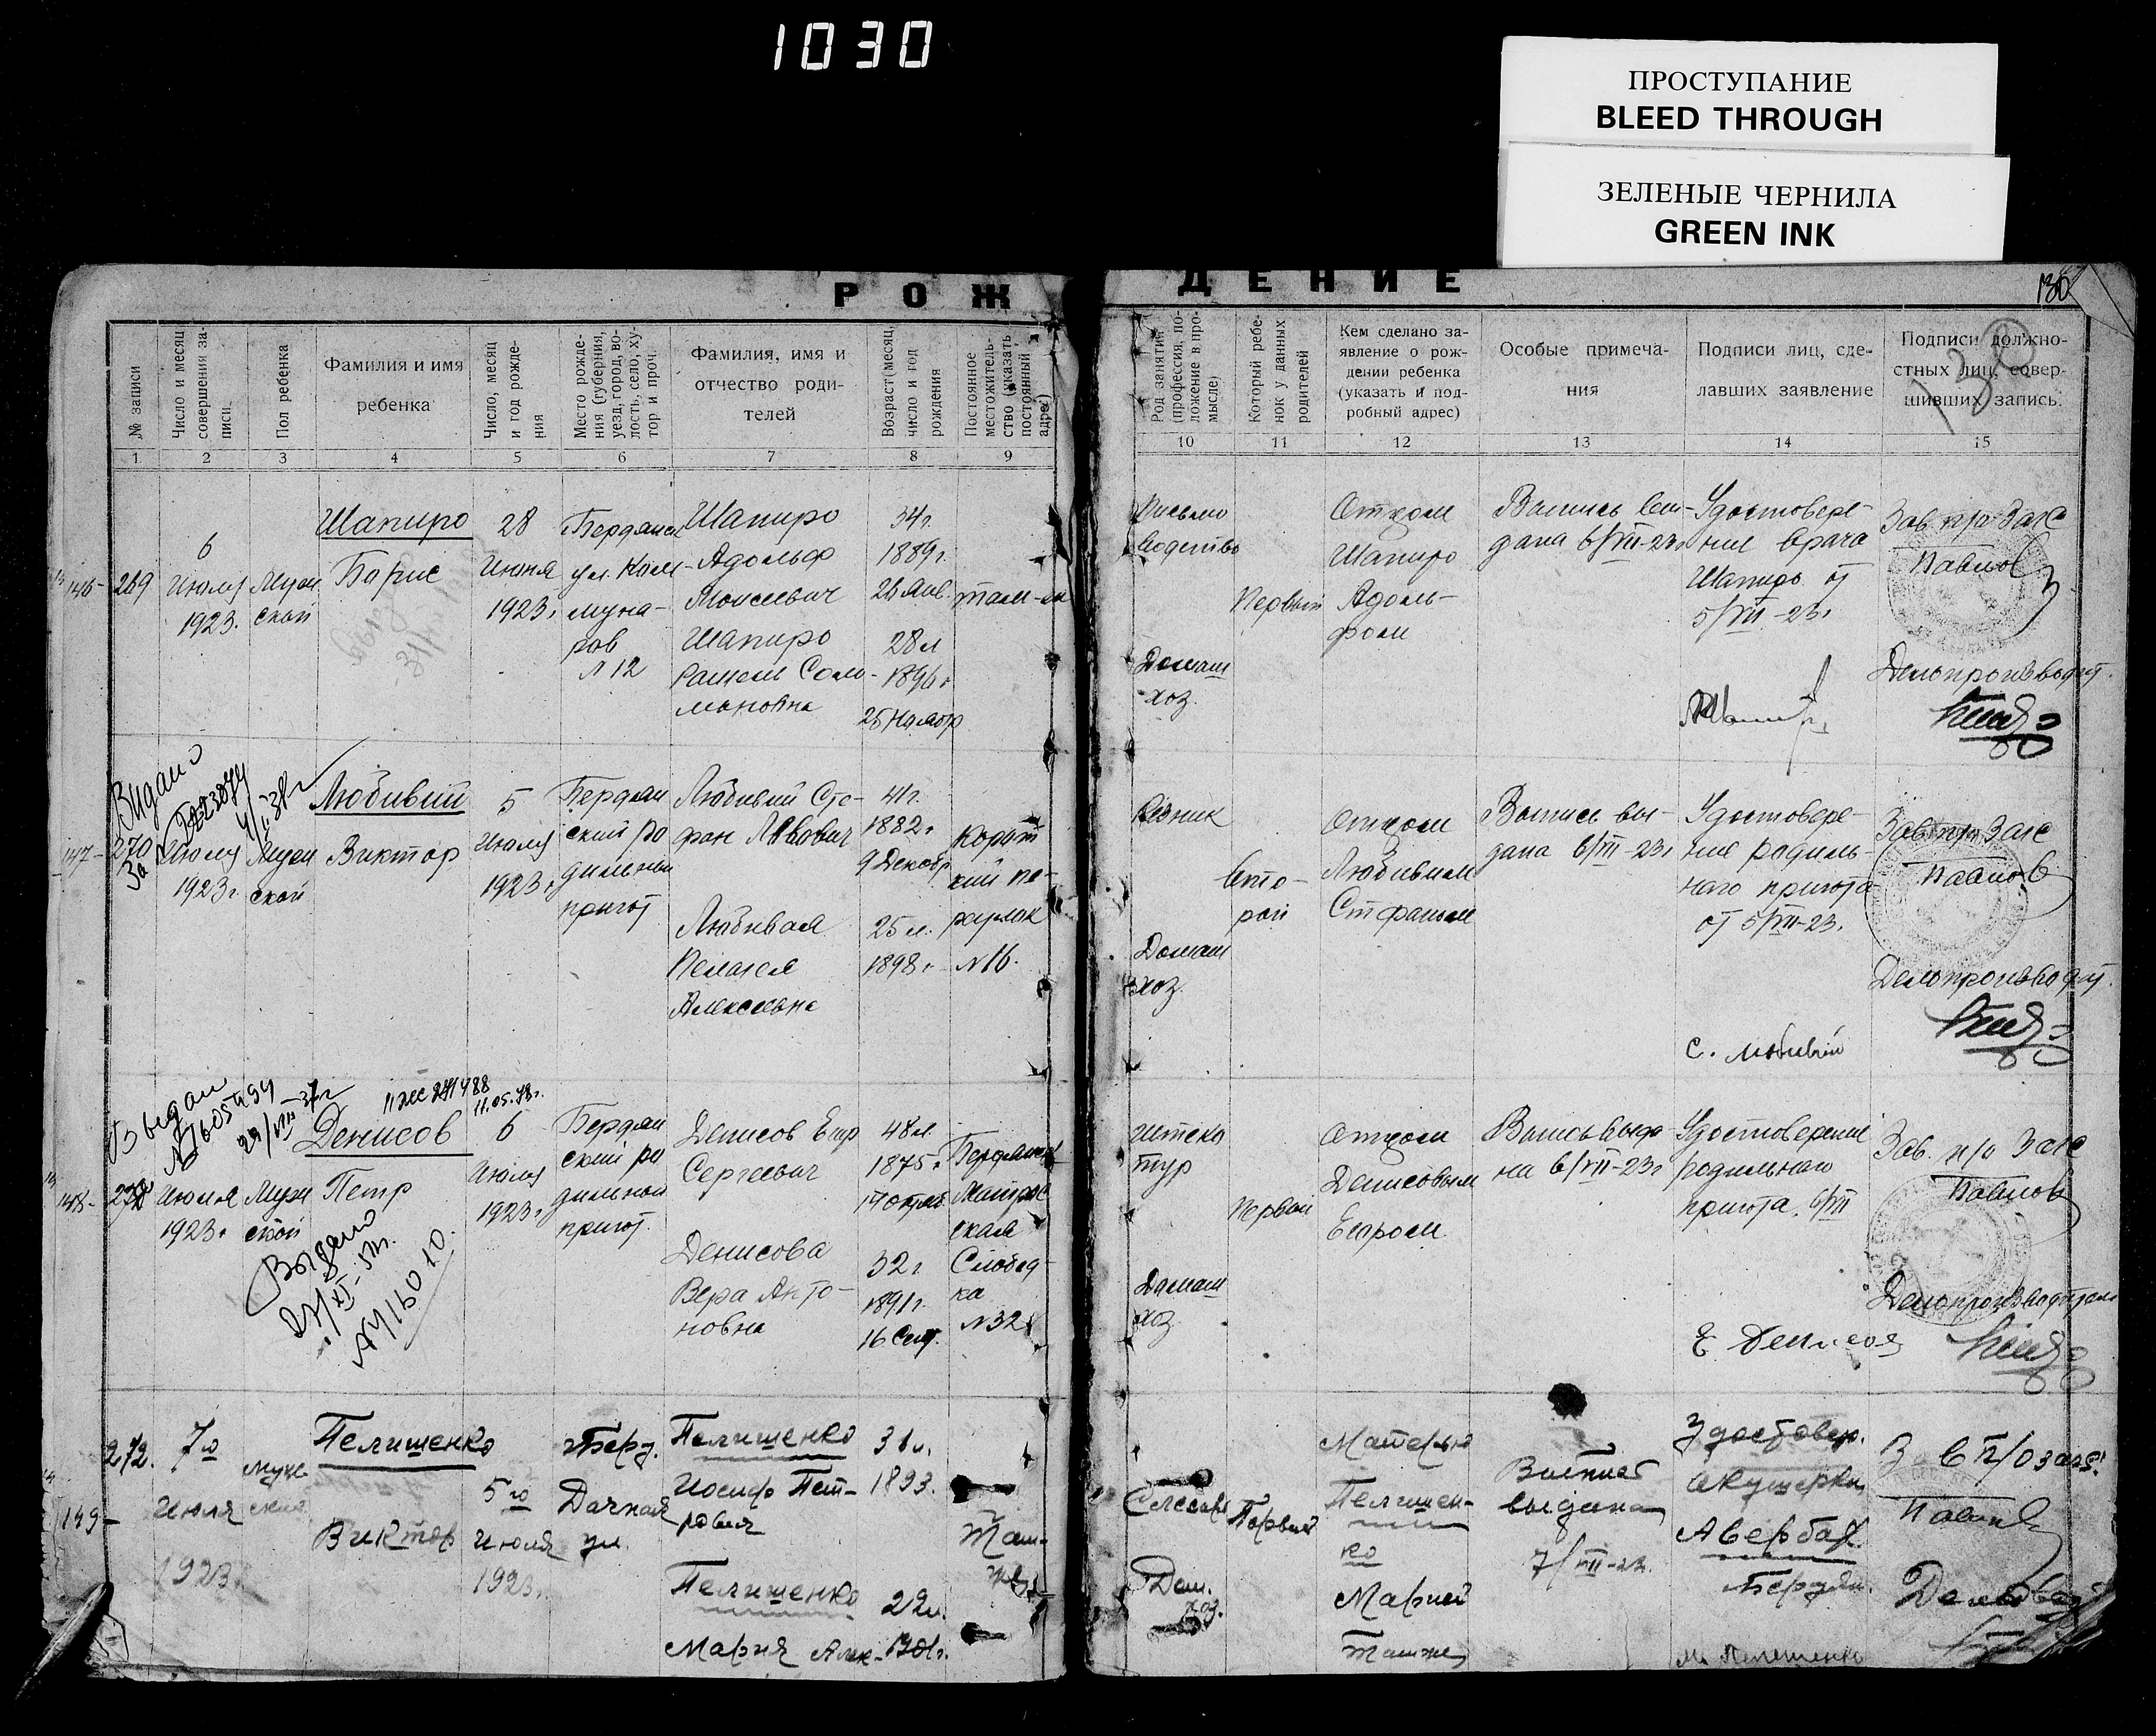 1030
ПРОСТУПАНИЕ
BLEED THROUGH
ЗЕЛЕНЫЕ ЧЕРНИЛА
GREEN INK
РОЖДЕНИЕ
130
130
№ записи
Число и месяц
совершения за-
писи.
Пол ребенка
Фамилия и имя
ребенка
Число, месяц
и год рожде-
ния
Место рожде-
ния (губерния,
уезд, город, во-
лость, село, ху-
тор и проч.
Фамилия, имя и
отчество роди-
телей
Возраст месяц,
число и год
рождения
Постоянное
местожитель-
ство (указать
постоянный
адрес)
Род занятий
(профессия, по-
ложение в про-
мысле)
Который ребе-
нок у данных
родителей
Кем сделано за-
явление о рож-
дении ребенка
(указать и под-
робный адрес)
Особые примеча-
ния
Подписи лиц, сде-
лавших заявление
Подписи должно-
стных лиц, совер-
шивших запись.
1 2 3 4 5 6 7 8 9 10 11 12 13 14 15
146-
269
6
Июля
1923.
Муж
ской
Шапиро
Борис
28
Июня
1923г
Бердянск
ул. Ком-
муна-
ров
N 12
Шапиро
Адольф
Моисеевич
Шапиро
Рашель Соло-
моновна
34г.
1889г.
26 Янв.
28 л
1894г
25 Ноябр
там-же
Письмо
водство
Домаш
хоз.
Первый
Отцом
Шапиро
Адоль-
фом
Выпись вы-
дана 6/VII-23г
Удостовере-
ние врача
Шапиро от
5/VII-23г
Зав. п/о Загс
Павлов
Делопроизводит.
Видано
4/II 38г
147-
270
За
Июля
1923г
Муж
ской
Любивый
Виктор
5
Июля
1923г
Бердян
ский ро
дильный
приют
Любивый Сте-
фан Львович
Любивая
Пелагея
Алексеевна
41г.
1882г
9 Декабр
25 л.
1898г.
N 16.
Резник
Домаш
хоз.
Вто-
рой
Отцом
Любивым
Стефаном
Выпись вы-
дана 6/VII-23г
Удостовере-
ние родиль-
ного приюта
от 5/VII-23.
С. Любивый
Зав п/о Загс
Павлов
Делопроизводит.
Выдан
29/VIII-37г
11.05.78г.
148-
Июля
1923г
Муж
ской
Денисов
Петр
Выдано
27/XI-51г.
6
Июля
1923г
Бердян
ский ро
дильной
приют.
Денисов Егор
Сергеевич
Денисова
Вера Анто-
новна
48 л.
1875г
32г
1891г.
16 Сент.
Бердянск
Слобод-
ка
N 32
Штука
тур
Домаш
хоз.
Первой
Отцом
Денисовым
Егором
Выпись выда
на 6/VII-23г
Удостоверение
родильного
приюта. 6/VII
Е Денисов
Зав. п/о Загс
Павлов
Делопроизводитель
149-
272.
7го
Июля
1923г.
Муж
ской
Пелишенко
Виктор
5го
Июля
1923г.
Берд.
Дачная
ул.
Пелишенко
Иосиф Пет-
рович
Пелишенко
Мария Алек-
31 л.
1893.
22 л.
1901г.
Там-
же
Слесарь
Дом.
хоз.
Первый
Матерью
Пелишен-
ко
Марией
там же
Выпись
выдана
7/VII-23.
Удостовер.
акушерки
Авербах
Бердян.
М. Пелешенко
Зав п/о загс
Павлов